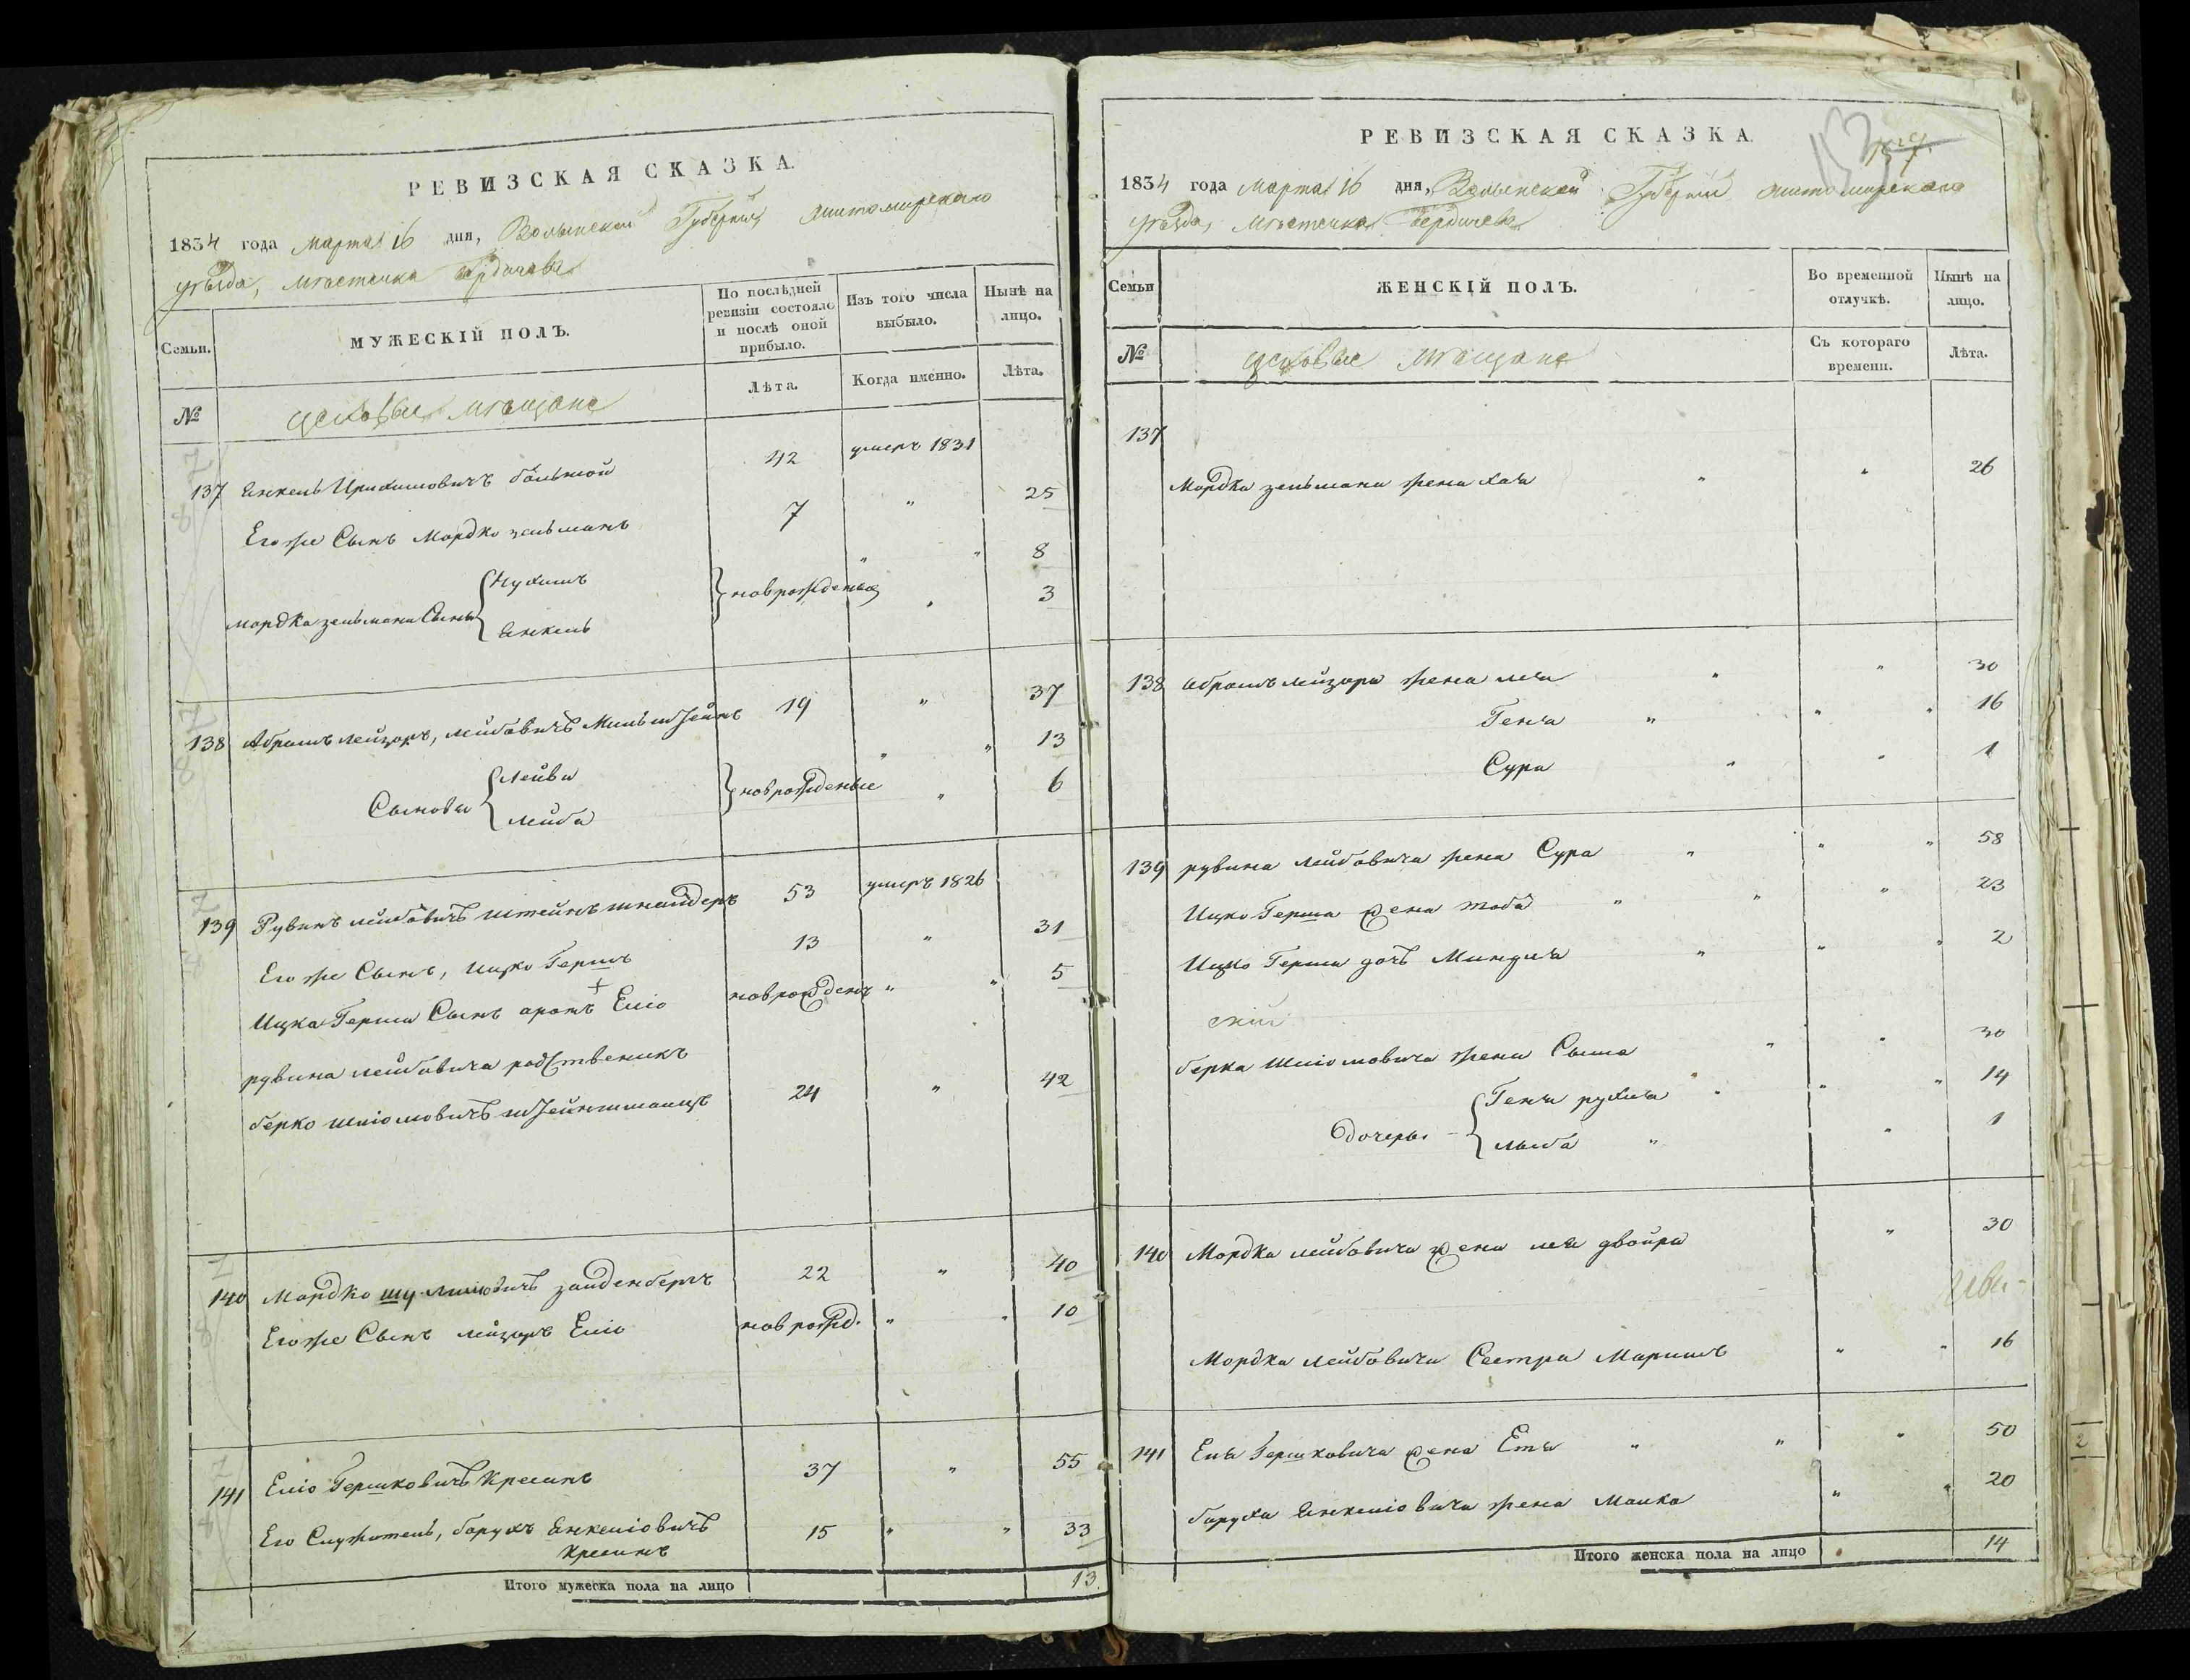 РЕВИЗСКАЯ СКАЗКА.
1834 года марта 16 дня, Волынской Губернии, житомирского
уѣзда, мѣстечка Бердичева
Семьи.
МУЖЕСКІЙ ПОЛЪ.
По послѣдней ревизіи состояло и послѣ оной прибыло.
Изъ того числа выбыло.
Нынѣ на лицо.
№
цеховые мѣщане
Лѣта.
Когда именно.
Лѣта.
137 Янкель больной 42 умеръ 1831
Его же Сынъ Мордко зельманъ 7 " 25
мордка зельмана Сыны { Нухимъ } новрожденые " " 8
Янкель " 3
138 Абрамъ лейзоръ, лейбовичъ Мильштейнъ 19 " 37
Сыновья { лейви } новрожденые " " 13
лейба " 6
139 Рувинъ лейбовичъ штейнъшнайдеръ 53 умеръ 1826
Его же Сынъ, ицко Гершъ 13 " 31
Ицка Герша Сынъ аронъ Еліо новрожденъ " " 5
рувина лейбовича родственикъ
берко шліомовичъ 24 " 42
140 Мордко зайденбергъ 22 " 40
Его же Сынъ лейзоръ Еліо новрожд. " " 10
141 Еліо Гершковичъ Кресинъ 37 " 55
Его Служитель, барухъ Янкеліовичъ 15 " " 33
Кресинъ
Итого мужеска пола на лицо 13.
РЕВИЗСКАЯ СКАЗКА.
1834 года марта 16 дня, Волынской Губерніи житомирского
уѣзда, мѣстечка Бердичева
Семьи
ЖЕНСКІЙ ПОЛЪ.
Во временной отлучкѣ.
Нынѣ на лицо.
№
цеховые мѣщане
Съ котораго времени.
Лѣта.
137
Мордка зельмана жена хая " " 26
138 Абрамъ лейзора жена лея " " 30
Геня " " " 16
Сура " " 1
139 рувина лейбовича жена Сура " " " 58
Ицко Герша жена тоба " " " 23
Ицко Герша дочь Миндля " " " 2
скій
берка Шліомовича жена Сыма " " 30
Дочеры { Геня рухля " " " " 14
лыба " " 1
140 Мордка лейбовича жена лея двойра " 30
Реви-
Мордка лейбовича Сестра Маримъ " " 16
141 Еля Гершковича жена Етя " " " 50
баруха Янкеліовича жена Малка " " 20
Итого женска пола на лицо 14